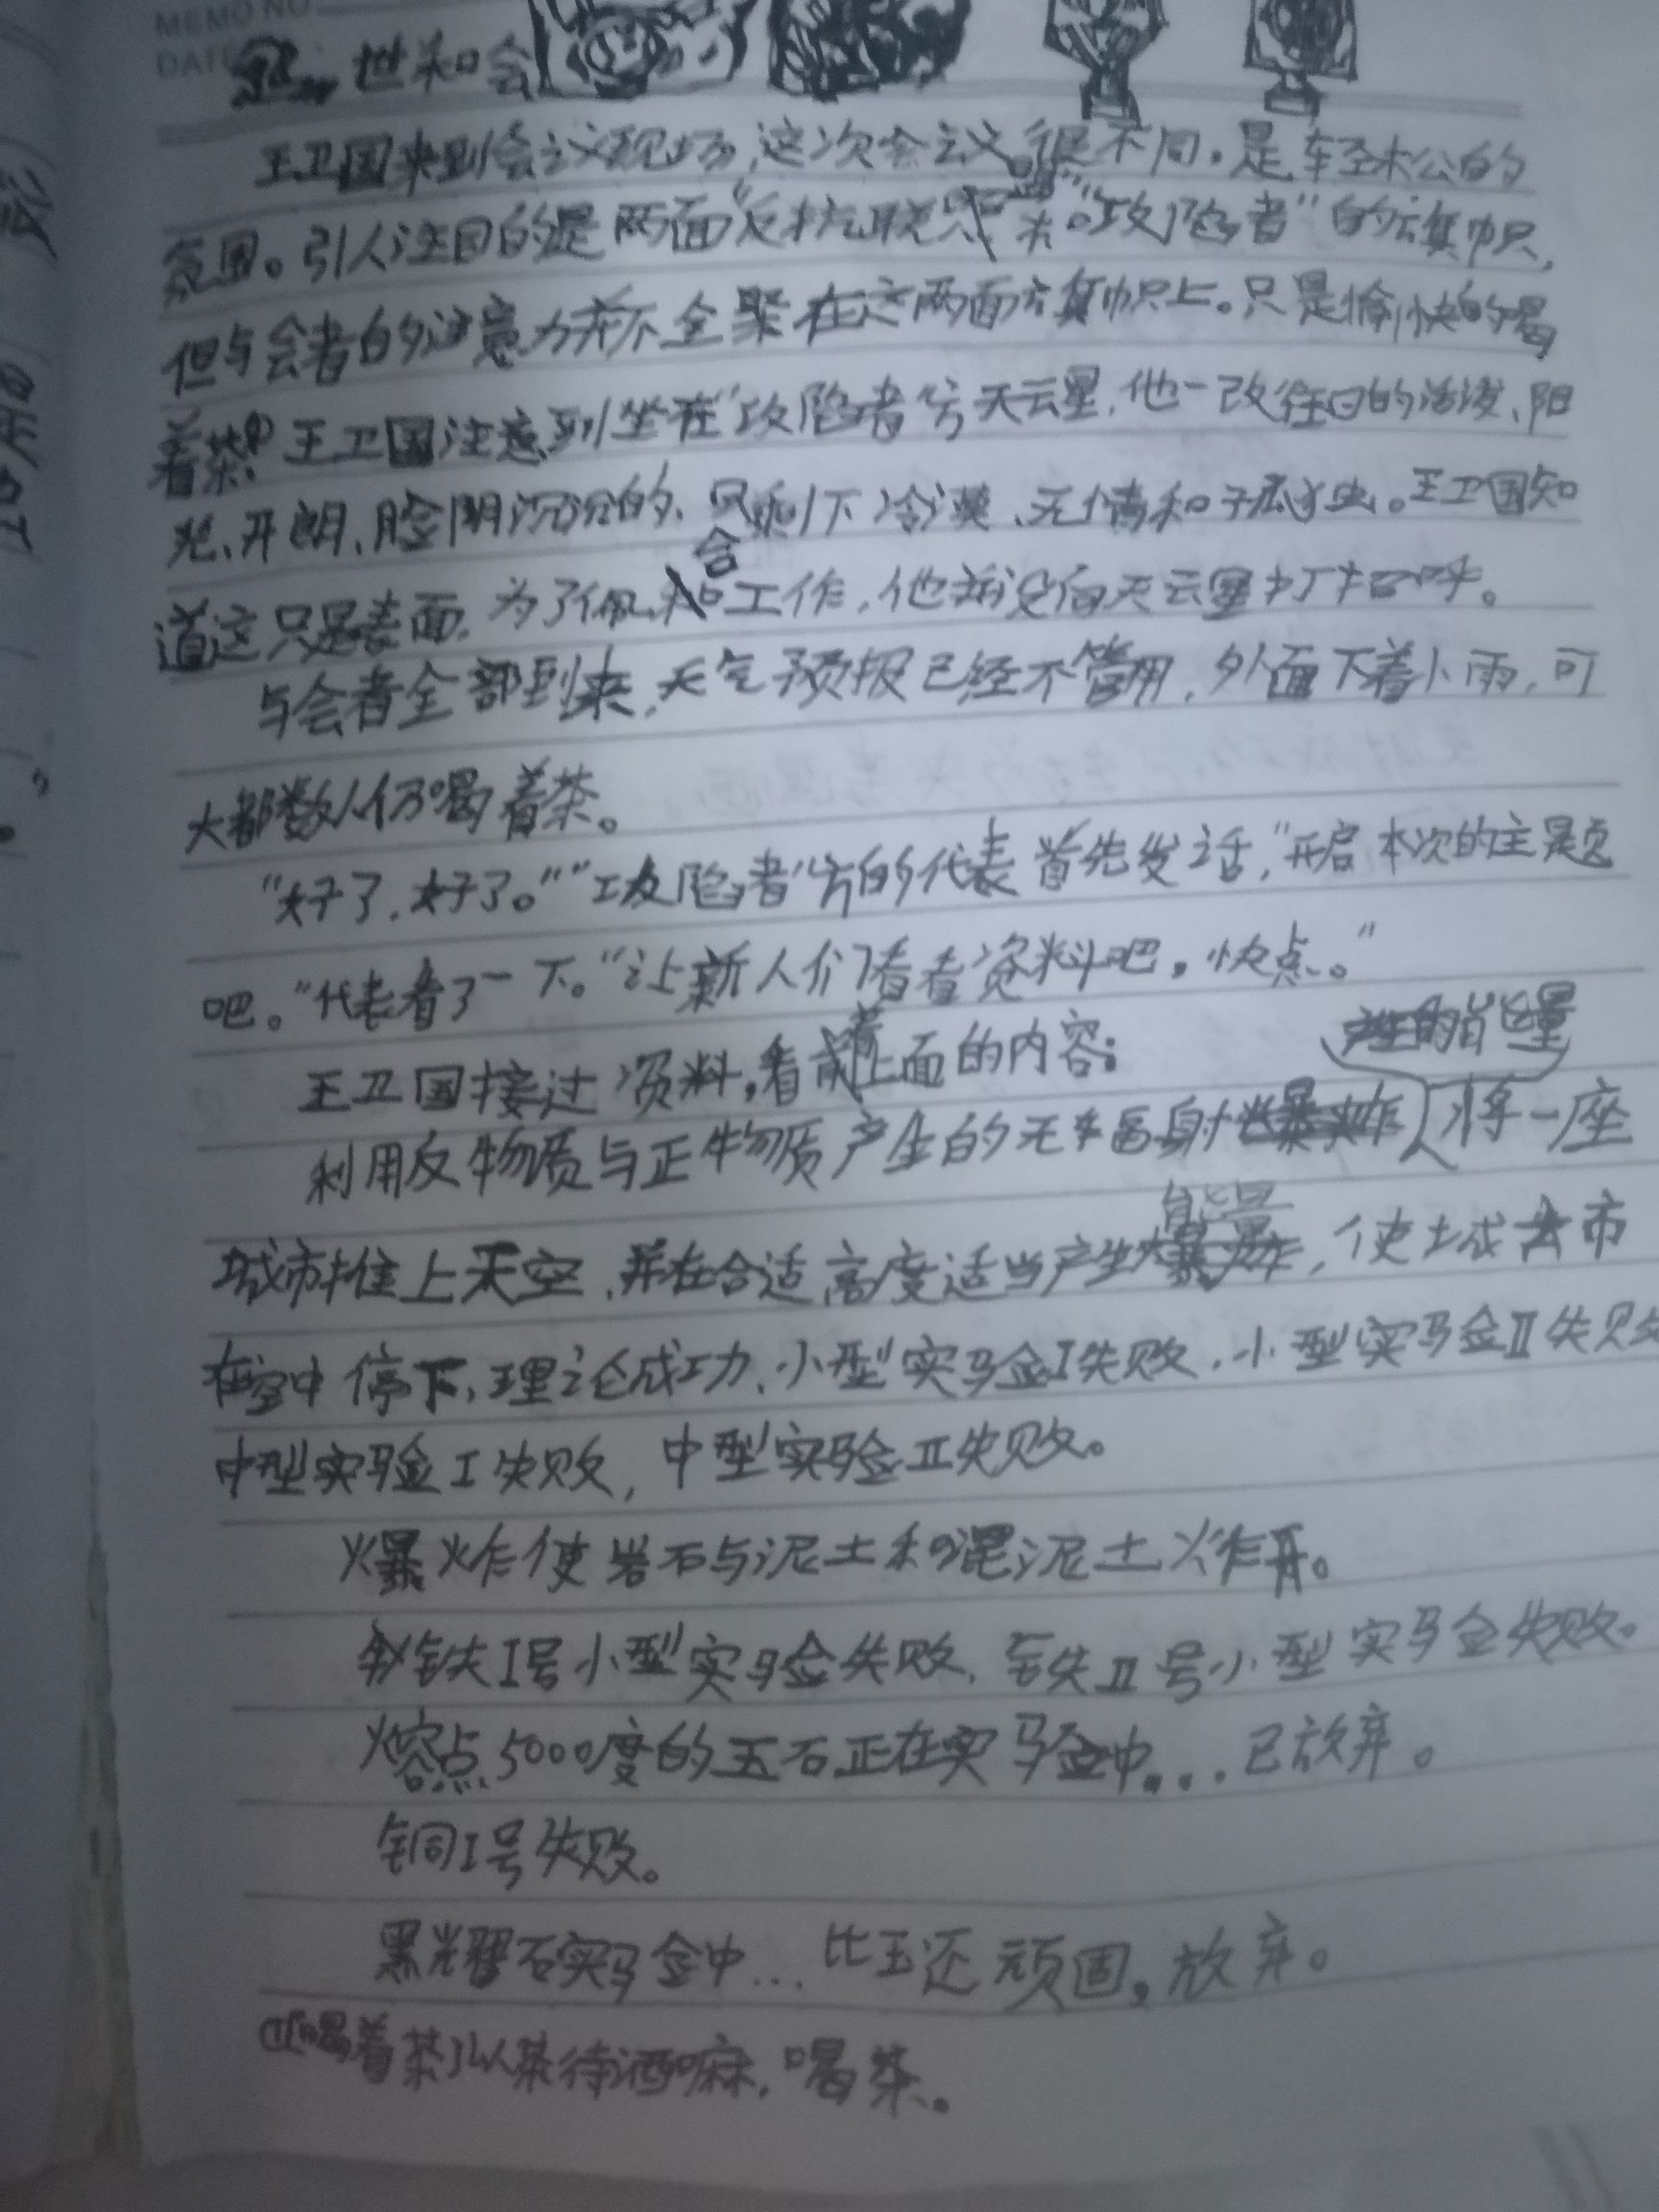 MEMO NO.
DATE
世和会
王卫国来到会议现场,这次会议很不同。是轻松的
氛围。引人注目的是两面“反抗联 ”“攻陷者”的旗帜,
但与会者的注意力并不全聚在这两面旗帜上。只是愉快的喝
着茶。王卫国注意到坐在“攻陷者”方天云星,他一改往日的活泼、阳
光、开朗、脸阴沉沉的、只剩下冷漠、无情和孤独。王卫国知
道这只是表面,为了佩合工作,他并没向天云星打招呼。
与会者全部到来,天气预报已经不管用,外面下着小雨,可
大都数人仍喝着茶。
“好了,好了。”“攻陷者”方的代表首先发话,“开启本次的主题
吧。”代表看了一下。“让新人们看看资料吧,快点。”
王卫国接过资料,看着上面的内容:
利用反物质与正物质产生的无辐射 产生的能量将一座
城市推上天空,并在合适高度适当产生能量,使城市
在空中停下,理论成功、小型实验I失败,小型实验II失败
中型实验I失败,中型实验II失败。
爆炸使岩石与泥土和混泥土炸开。
钛铁I号小型实验失败,铁II号小型实验失败。
熔点5000度的玉石正在实验中...已放弃。
铜I号失败。
黑光耀石实验中...比玉还顽固,放弃。
喝着茶 以茶待酒嘛,喝茶。